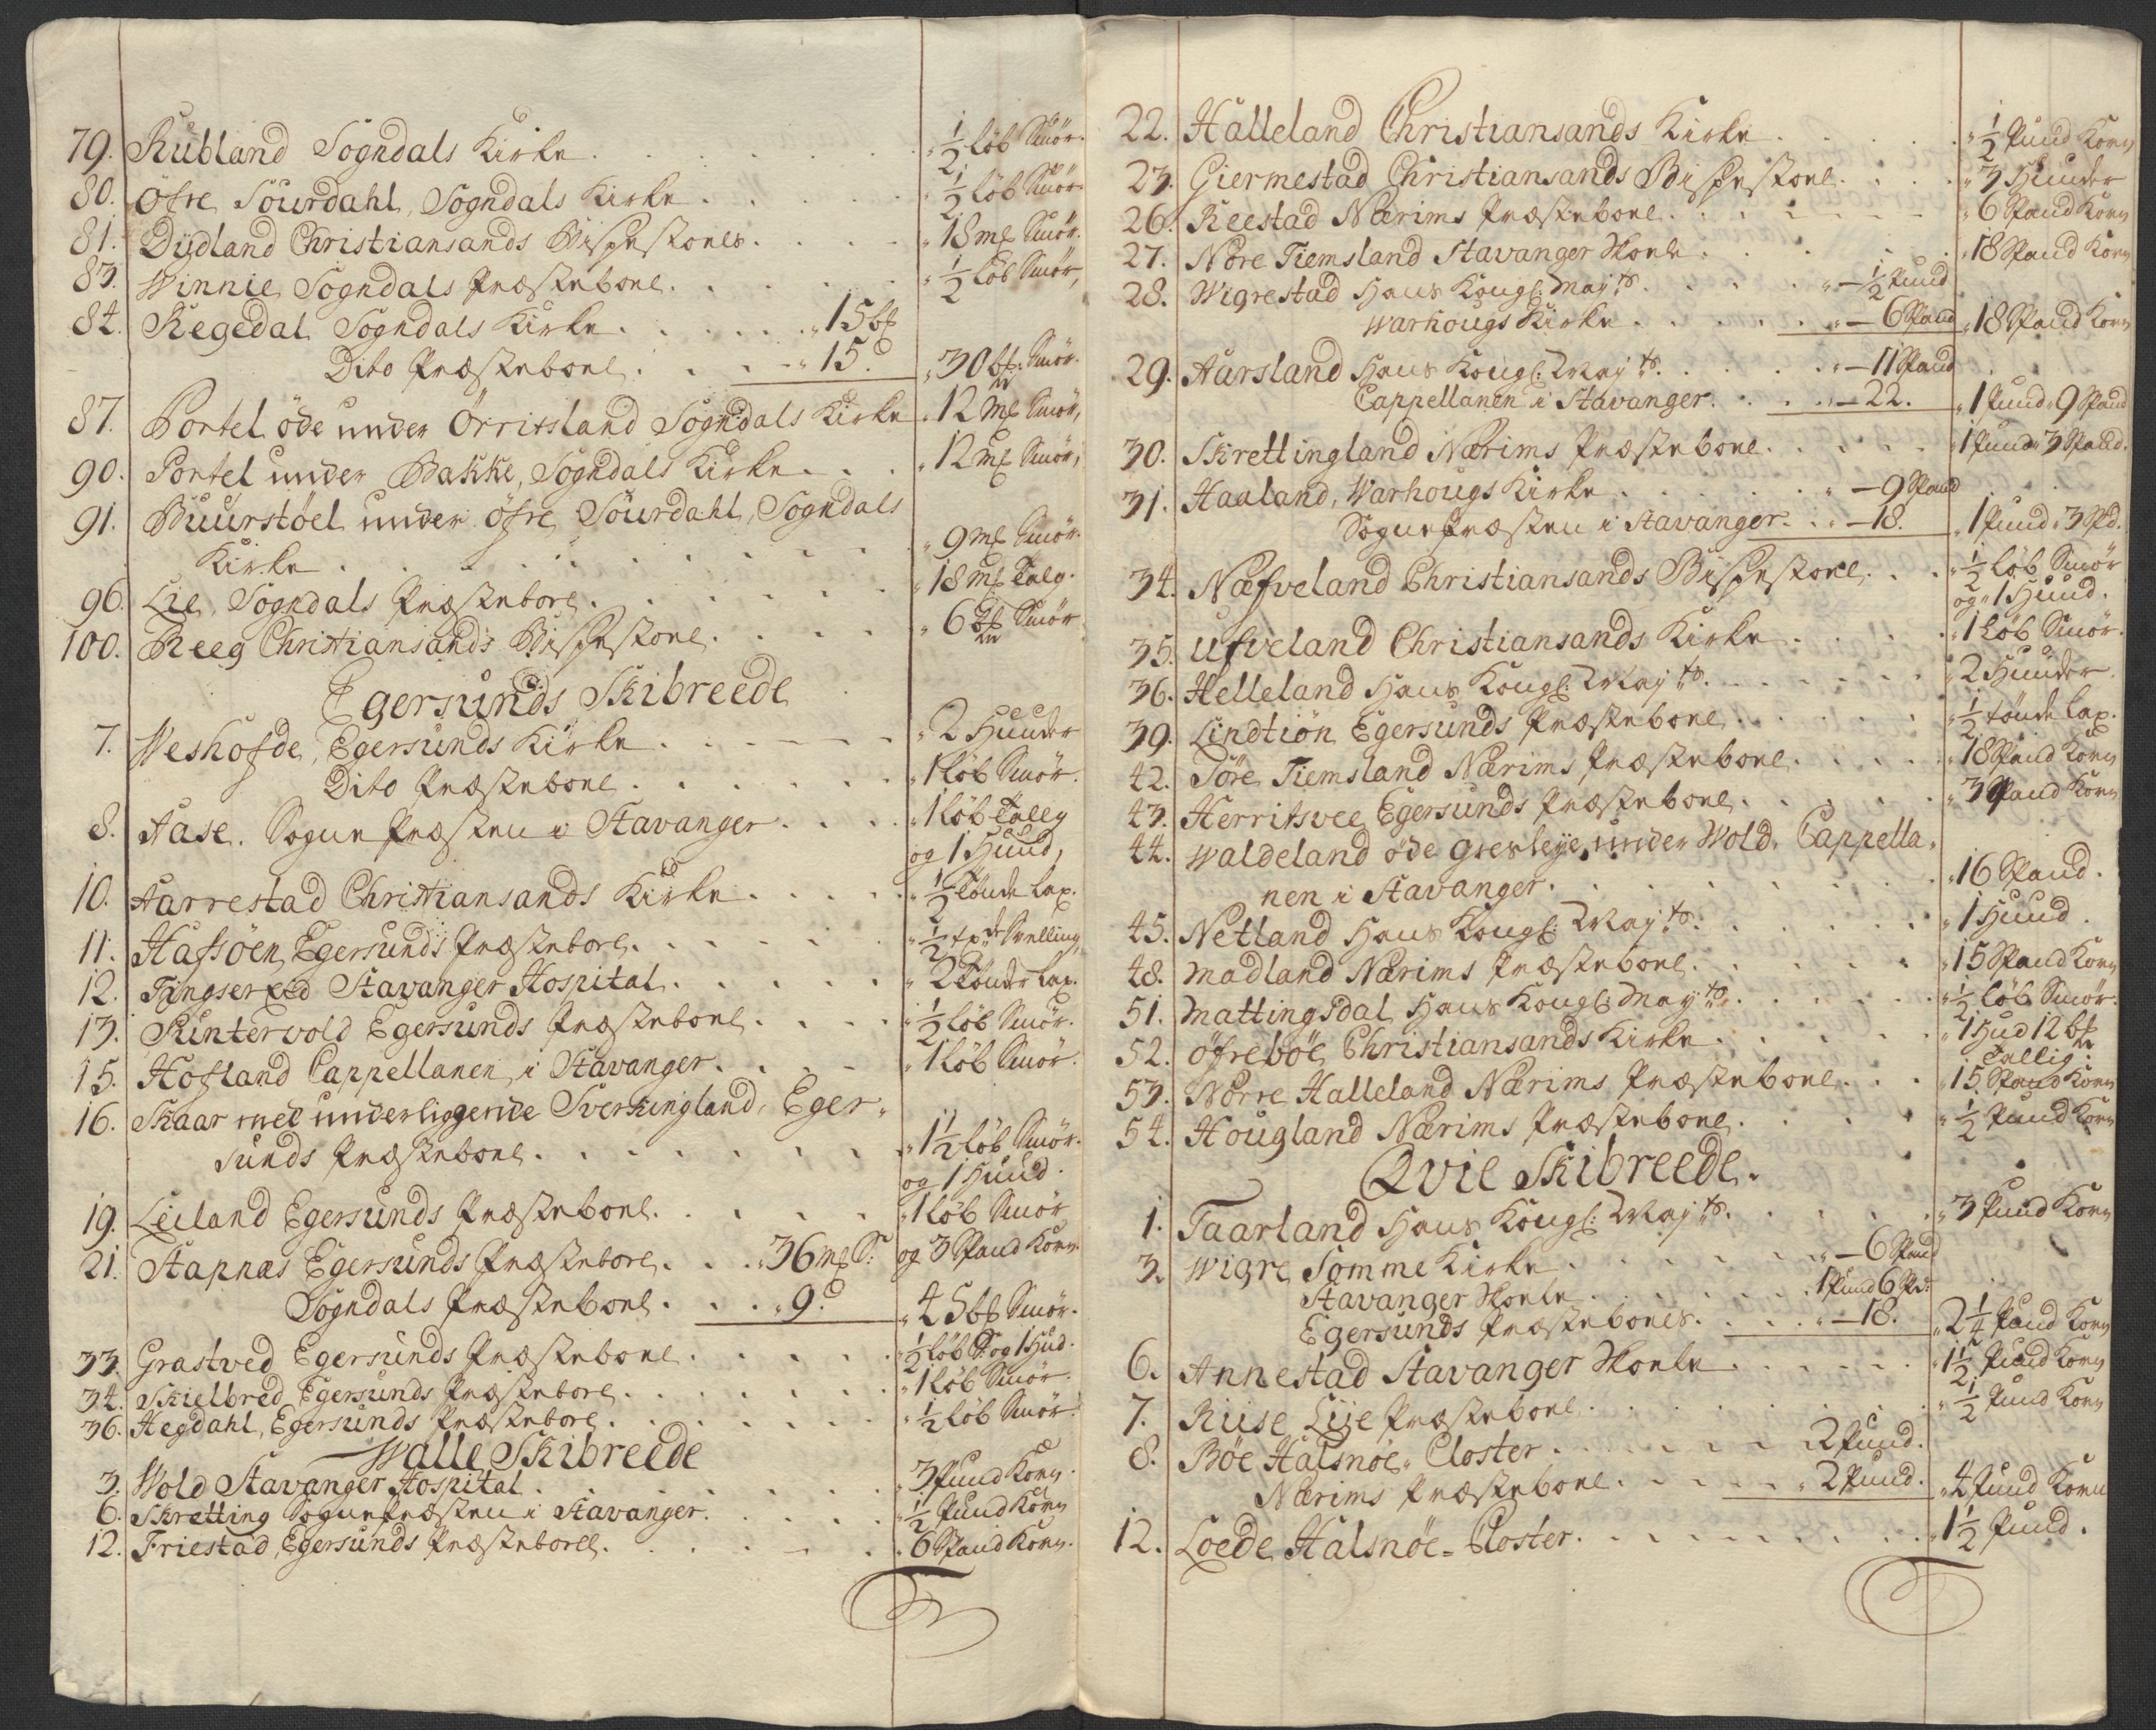 79. Rubland Sogndals Kirke . . . . . . . ½ Løb Smör.
80. Öfre Sourdahl, Sogndals Kirke . . . . . . ½ Løb Smör.
81. Dydland Christiansands Bispestoels . . . . 18 mk Smör.
83. Winnie Sogndals Præstebool . . . . . ½ Løb Smör,
84. Regedal Sogndals Kirke . . . . . 15 bp
Dito Præstebool . . . . 15 d 30 bp. Smör.
87. Portel öde under Örritsland Sogndals Kirke 12 mk Smör,
90. Portel under Bakke, Sogndals Kirke . . . 12 mk Smör,
91. Buurstöel under öfre Sourdahl, Sogndals
Kirke . . . . . . . . . 9 mk Smör.
96. Lie, Sogndals Præstebool . . . . . . 18 mk Talg.
100. Reeg Christiansands Bispestoel . . . . 6 bp Smör
Egersunds Skibreede
7. Weshofde, Egersunds Kirke . . . . . . 2 Huuder
Dito Præstebool . . . . . . 1 Løb Smör.
8. Aase. Sogne Præsten i Stavanger . . . . 1 Løb Tallg
og 1 Huud,
10. Aarrestad Christiansands Kirke . . . . ½ Tönde Lax.
11. Hafsöen Egersunds Præstebool . . . . . ½ tpdr Svelling,
12. Tingsered Stavanger Hospital . . . . . 2 Tönder Lax.
13. Puntervold Egersunds Præstebool . . . . ½ Løb Smör.
15. Hofland Cappellanen i Stavanger . . . . 1 Løb Smör.
16. Skaar med underliggende Sverkingland, Eger-
sunds Præstebool . . . . . . . 1½ Løb Smör.
og 1 Huud.
19. Leiland Egersunds Præstebool . . . . . 1 Løb Smör
og 3 Spand Korn.
21. Stapnæs Egersunds Præstebool . . . 36 mk S:
Sogndals Præstebool . . . 9 d 45 bp Smör.
33. Grastved Egersunds Præstebool . . . . . ½ Løb S: og 1 Hud.
34. Skielbred Egersunds Præstebool . . . . . . 1 Løb Smör.
36. Hegdahl, Egersunds Præstebool . . . . . . ½ Løb Smör.
Walle Skibreede
3. Wold Stavanger Hospital . . . . . . . 3 Pund Korn.
6. Skretting Sognepræsten i Stavanger . . . . . ½ Pund Korn
12. Friestad, Egersunds Præstebool . . . . . . 6 Spand Korn.
22. Halleland Christiansands Kirke . . . . . ½ Pund Korn
23. Giermestad Christiansands Bispestoel . . . . 3 Huuder
26. Reestad Nærims Præstebool . . . . . . . 6 Spand Korn
27. Nöre Tiemsland Stavanger Skoele . . . . . 18 Spand Korn
28. Wigrestad Hans Kongl: May:ts . . . . . — ½ Pund
Warhougs Kirke . . . . . — 6 Spand 18 Spand Korn
29. Aarsland Hans Kongl: May:ts . . . . . — 11 Spand
Cappellanen i Stavanger . . . — 22. 1 Pund 9 Spand
30. Skrettingland Nærims Præstebool . . . . . 1 Pund 3 Spand.
31. Haaland, Warhougs Kirke . . . . . — 9 Spand
Sognepræsten i Stavanger . . — 18. 1 Pund 3 Spd.
34. Næfveland Christiansands Bispestoel . . . ½ Løb Smör
og 1 Huud.
35. Ufveland Christiansands Kirke . . . . 1 Løb Smör.
36. Helleland Hans Kongl: May:ts . . . . . . 2 Huuder.
39. Lindtiön Egersunds Præstebool . . . . . ½ tönde Lax.
42. Söre Tiemsland Nærims Præstebool . . . . 18 Spand Korn
43. Herritsvee Egersunds Præstebool . . . . . 3 Spand Korn
44. Waldeland öde Græsleye under Wold. Cappella-
nen i Stavanger . . . . . . . . 16 Spand.
45. Netland Hans Kongl: May:ts . . . . . . 1 Huud.
48. Madland Nærims Præstebool . . . . . . 15 Spand Korn
51. Mattingsdal Hans Kongl: May:ts . . . . . ½ Løb Smör.
52. Öfreböe Christiansands Kirke . . . . . . 1 Hud 12 bp
Tallig.
53. Nörre Halleland Nærims Præstebool . . . 15 Spand Korn
54. Hougland Nærims Præstebool . . . . . ½ Pund Korn
Qvie Skibreede.
1. Taarland Hans Kongl: May:ts . . . . . 3 Pund Korn
3. Wigre Somme Kirke . . . . . . — 6 Spand
Stavanger Skoele . . . . . . 1 Pund 6 Spd:
Egersunds Præstebools . . . . . — 18. 2¼ Pund Korn
6. Annestad Stavanger Skoele . . . . . . 1½ Pund Korn
7. Riise Lye Præstebool . . . . . . . . ½ Pund Korn
8. Böe Halsnöe Closter . . . . . . 2 Pund.
Nærims Præstebool . . . . . 2 Pund. 4 Pund Korn
12. Loede Halsnöe-Closter . . . . . . . . 1½ Pund.